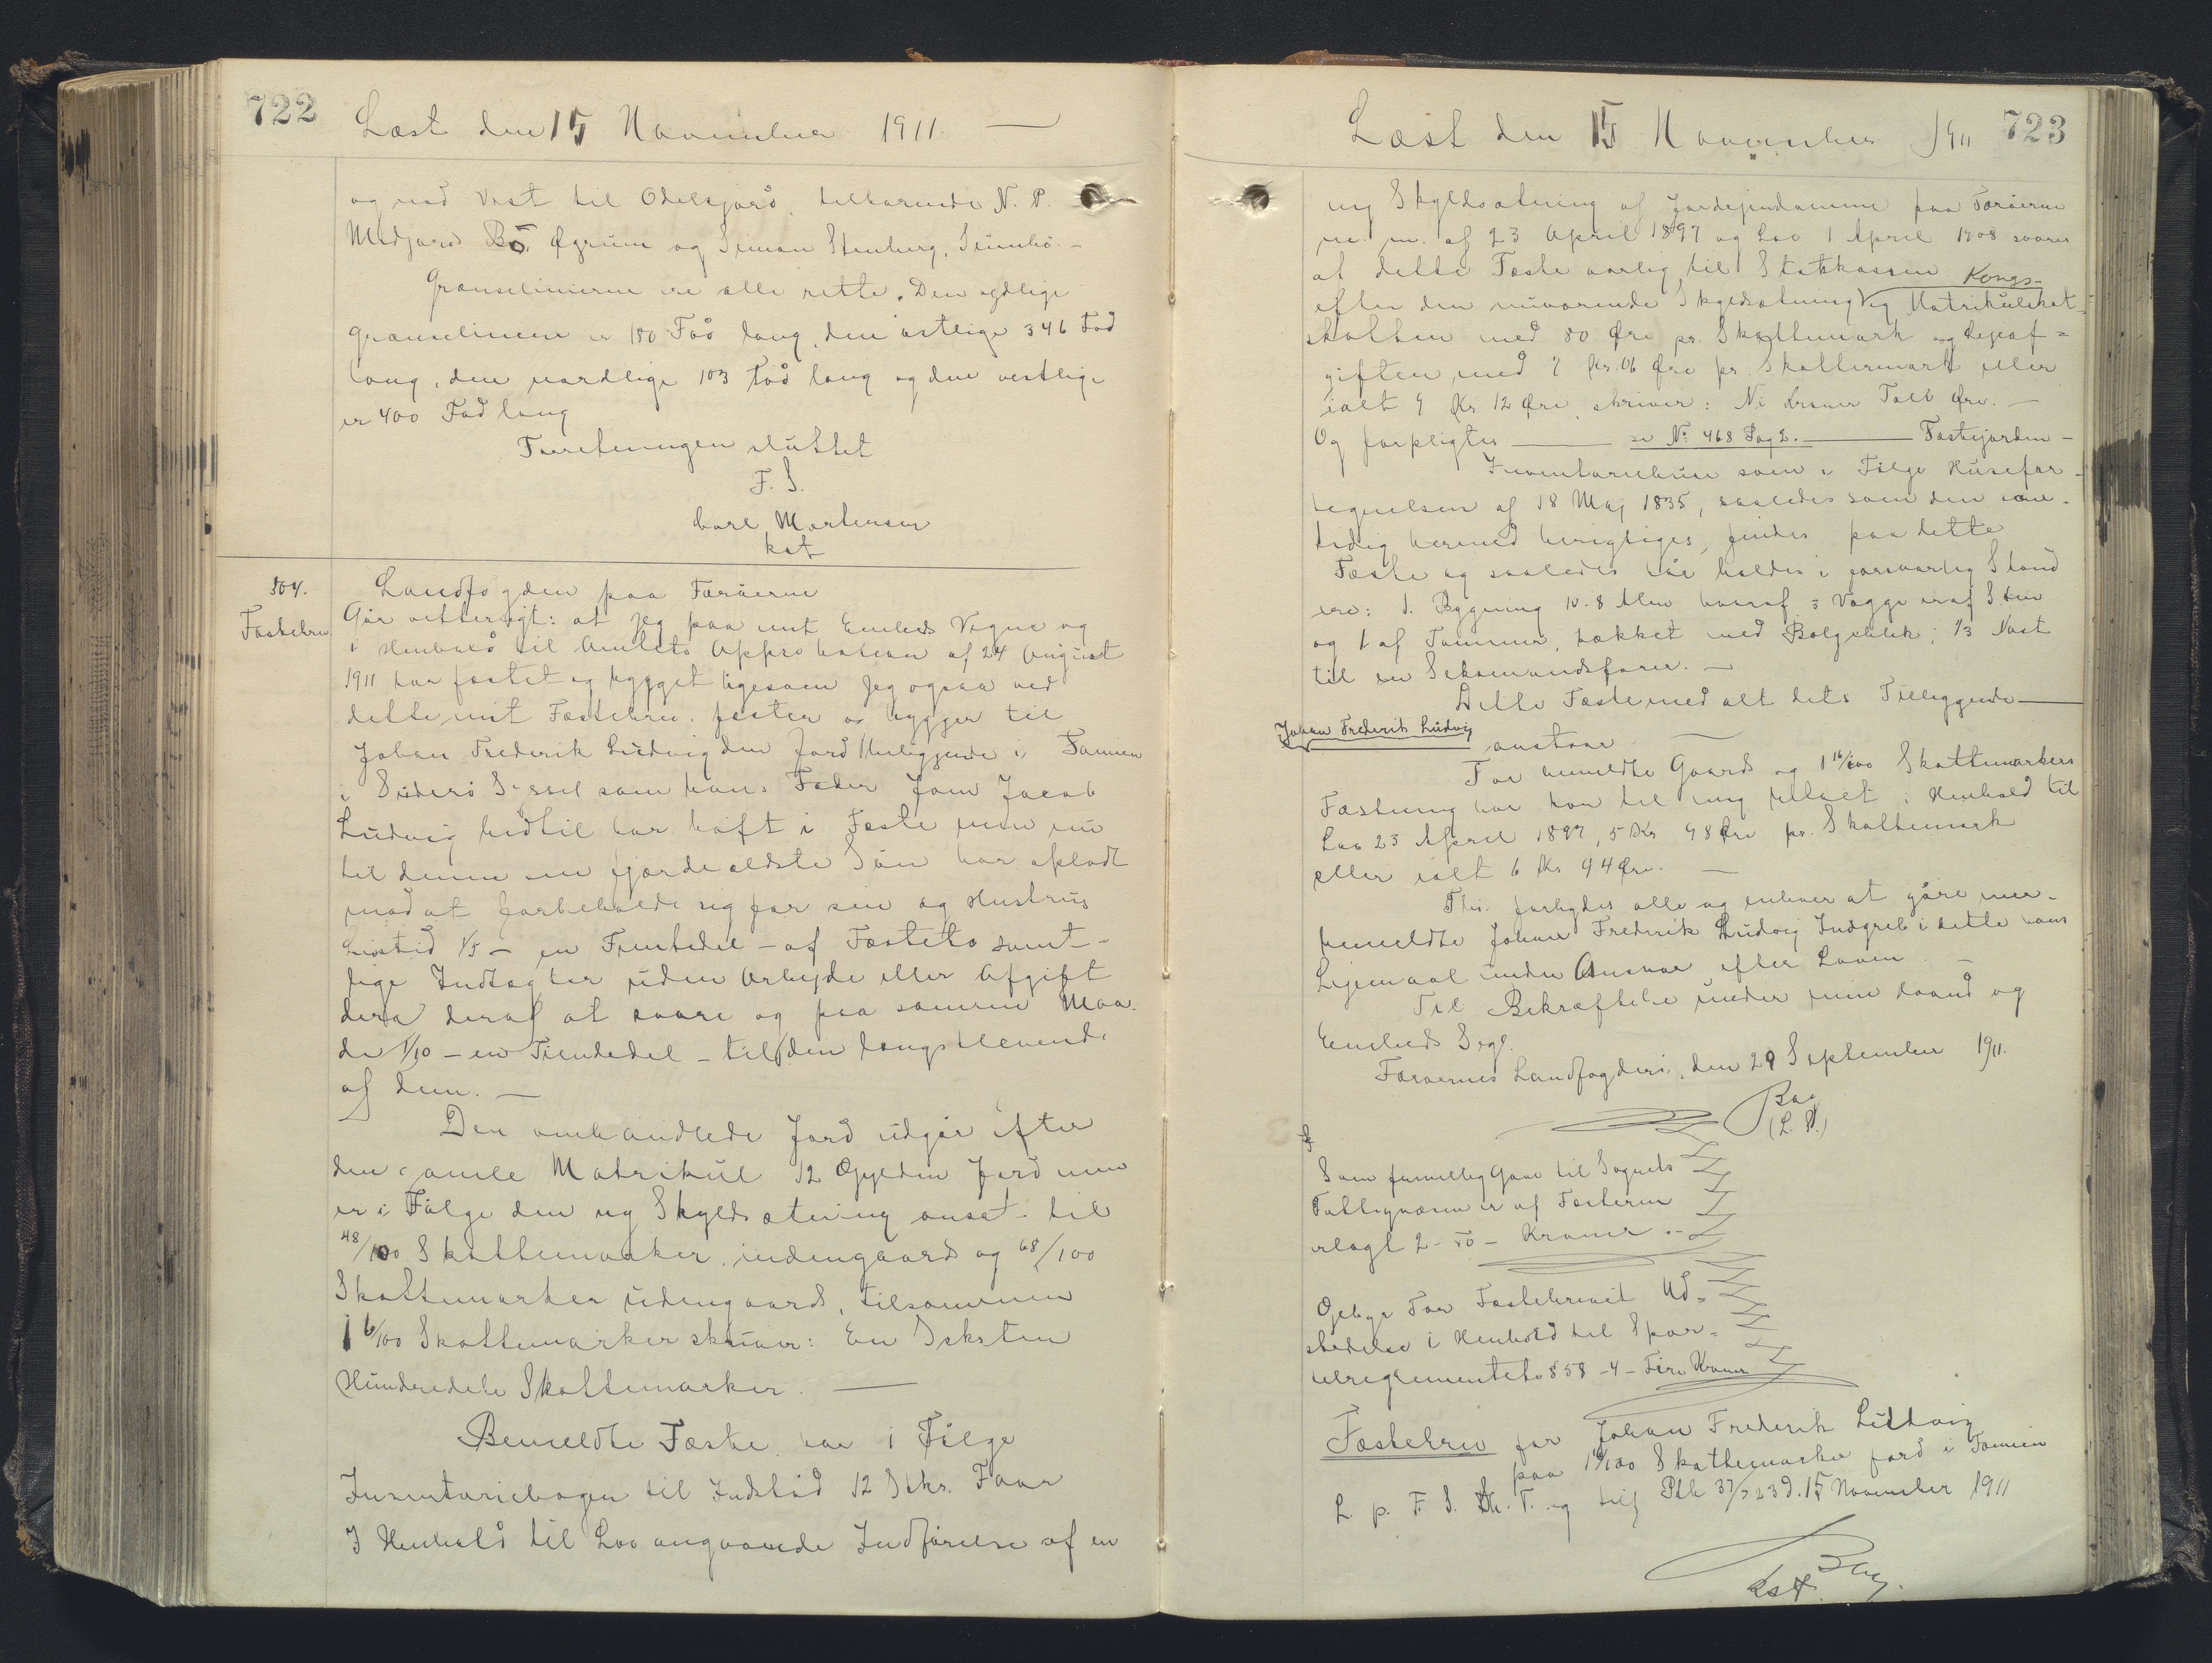 722
Læst den 15 November 1911. —
og mod Vest til Odelsjord, tilhørende N. P.
Midjord Bö, Øgrum og Simon Stenberg, Sumbö. —
Grænselinierne ere alle rette. Den sydlige
Grænselinien er 180 Fod lang, den östlige 346 Fod
lang, den nordlige 103 Fod lang og den vestlige
er 400 Fod lang
Forretningen sluttet
F. S.
Carl Mortensen
kst
504.
Fæstebrev
Landfogden paa Færöerne
Gör vitterligt: at jeg paa mit Embeds Vegne og
i Henhold til Amtets Approbation af 24 August
1911 har fæstet og bygget ligesom Jeg ogsaa ved
dette mit Fæstebrev fæster og bygger til
Johan Frederik Ludvig den Jord beliggende i Famien
i Süderö Syssel som hans Fader Joen Jacob
Ludvig hidtil har haft i Fæste men nu
til denne sin fjerdeældste Sön har opladt
mod at forbeholde sig for sin og Hustrus
Livstid 1/5 — en Femtedel — af Fæstets samt-
lige Indtægter uden Arbejde eller Afgift
dera deraf at svare og paa samme Maa-
de 1/10 — en Tiendedel — til den længstlevende
af dem. —
Den omhandlede Jord udgör efter
den gamle Matrikul 12 Gylden Jord men
er i Fölge den ny Skyldsætning ansat til
48/100 Skattemarker indengaards og 68/100
Skattemarker udengaards, tilsammen
1 16/100 Skattemarker skriver: En Seksten
Hundrededele Skattemarker. —
Bemeldte Fæste har i Fölge
Inventariebogen til Indstöd 12 Stkr. Faar
I Henhold til Lov angaaende Indförelse af en
Læst den 15 November 1911
723
ny Skyldsætning af Jordejendomme paa Færöerne
m. m. af 23 April 1897 og Lov 1 April 1908 svares
af dette Fæste aarlig til Statskassen
Kongs-
efter den nuværende Skyldsætning og Matrikulskat-
skatten med 80 Øre pr. Skattemark og Lejeaf=
giften med 7 Kr. 06 Øre pr. Skattemark eller
ialt 9 Kr 12 Øre, skriver: Ni Kroner Tolv Øre. —
Og forpligter — se No 468 Pag 2. — Fæstejorden —
Inventariehuse som i Fölge Husefor-
tegnelsen af 18 Maj 1835, saaledes som den sam-
tidig hermed berigtiges, findes paa dette
Fæste og saaledes bör holdes i forsvarlig Stand
ere: 1. Bygning 10. 8 Alen hvoraf 3 Vægge er af Sten
og 1 af Tömmer, tækket med Bölgeblik; 1/3 Nöst
til en Seksmandsfarer. —
Dette Fæste med alt dets Tilliggende —
Johan Frederik Ludvig
anstaar —
For bemeldte Gaards og 1 16/100 Skattemarkers
Fæstning har han til mig betalt i Henhold til
Lov 23 April 1897, 5 Kr 98 Øre pr. Skattemark
eller ialt 6 Kr 94 Øre. —
Thi forbydes alle og enhver at göre mer-
bemeldte Johan Frederik Ludvig Indgreb i dette hans
Lejemaal under Ansvar efter Loven. —
Til Bekræftelse under min Haand og
Embeds Segl.
Færöernes Landfogderi, den 29 September 1911.
Bay
(L. S.)
Som frivillig Gave til Sognets
Fattigvæsen er af Fæsteren
erlagt 2 - to - Kroner. —
Gebyr For Fæstebrevet Ud=
stedelse i Henhold til Spor=
telreglementets § 58 - 4 - Fire Kroner
Fæstebrev for Johan Frederik Ludvig
paa 1 16/100 Skattemarker Jord i Famien
L. p. F. S. Th. T. og tilf Ptb 37/323 d. 15 November 1911
Bay.
kst.